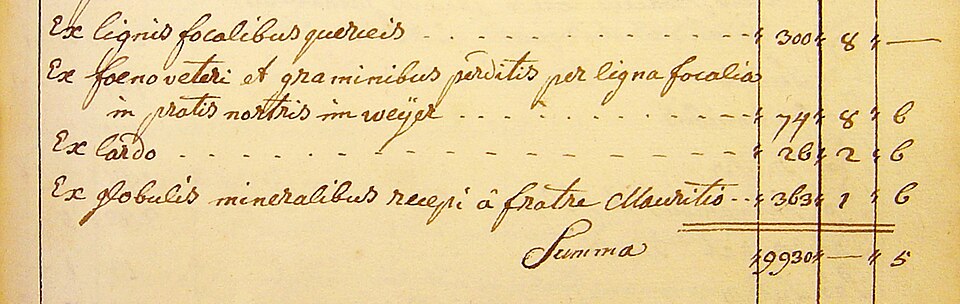 Ex lignis focalibus querceis . . . . . . . . . . . . " 300 " 8 " —
Ex foeno veteri et graminibus perditis per ligna focalia
in pratis nostris im weÿer . . . . . . . . . . . . " 74 " 8 " 6
Ex lardo . . . . . . . . . . . . " 26 " 2 " 6
Ex globulis mineralibus recepi â fratre Mauritio . . " 363 " 1 " 6
Summa " 9930 " — " 5